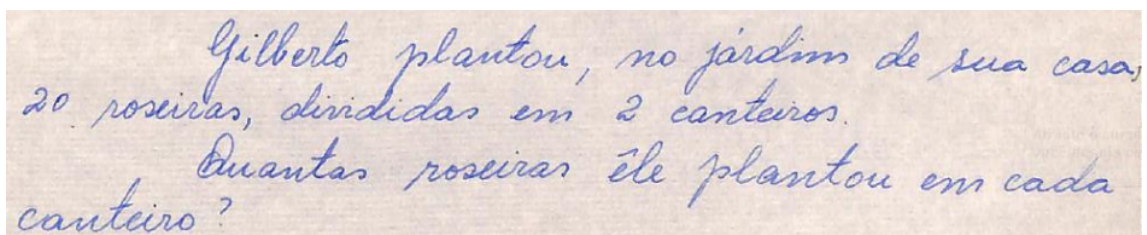 Gilberto plantou, no jardim de sua casa,
20 roseiras, divididas em 2 canteiros.
Quantas roseiras êle plantou em cada
canteiro?